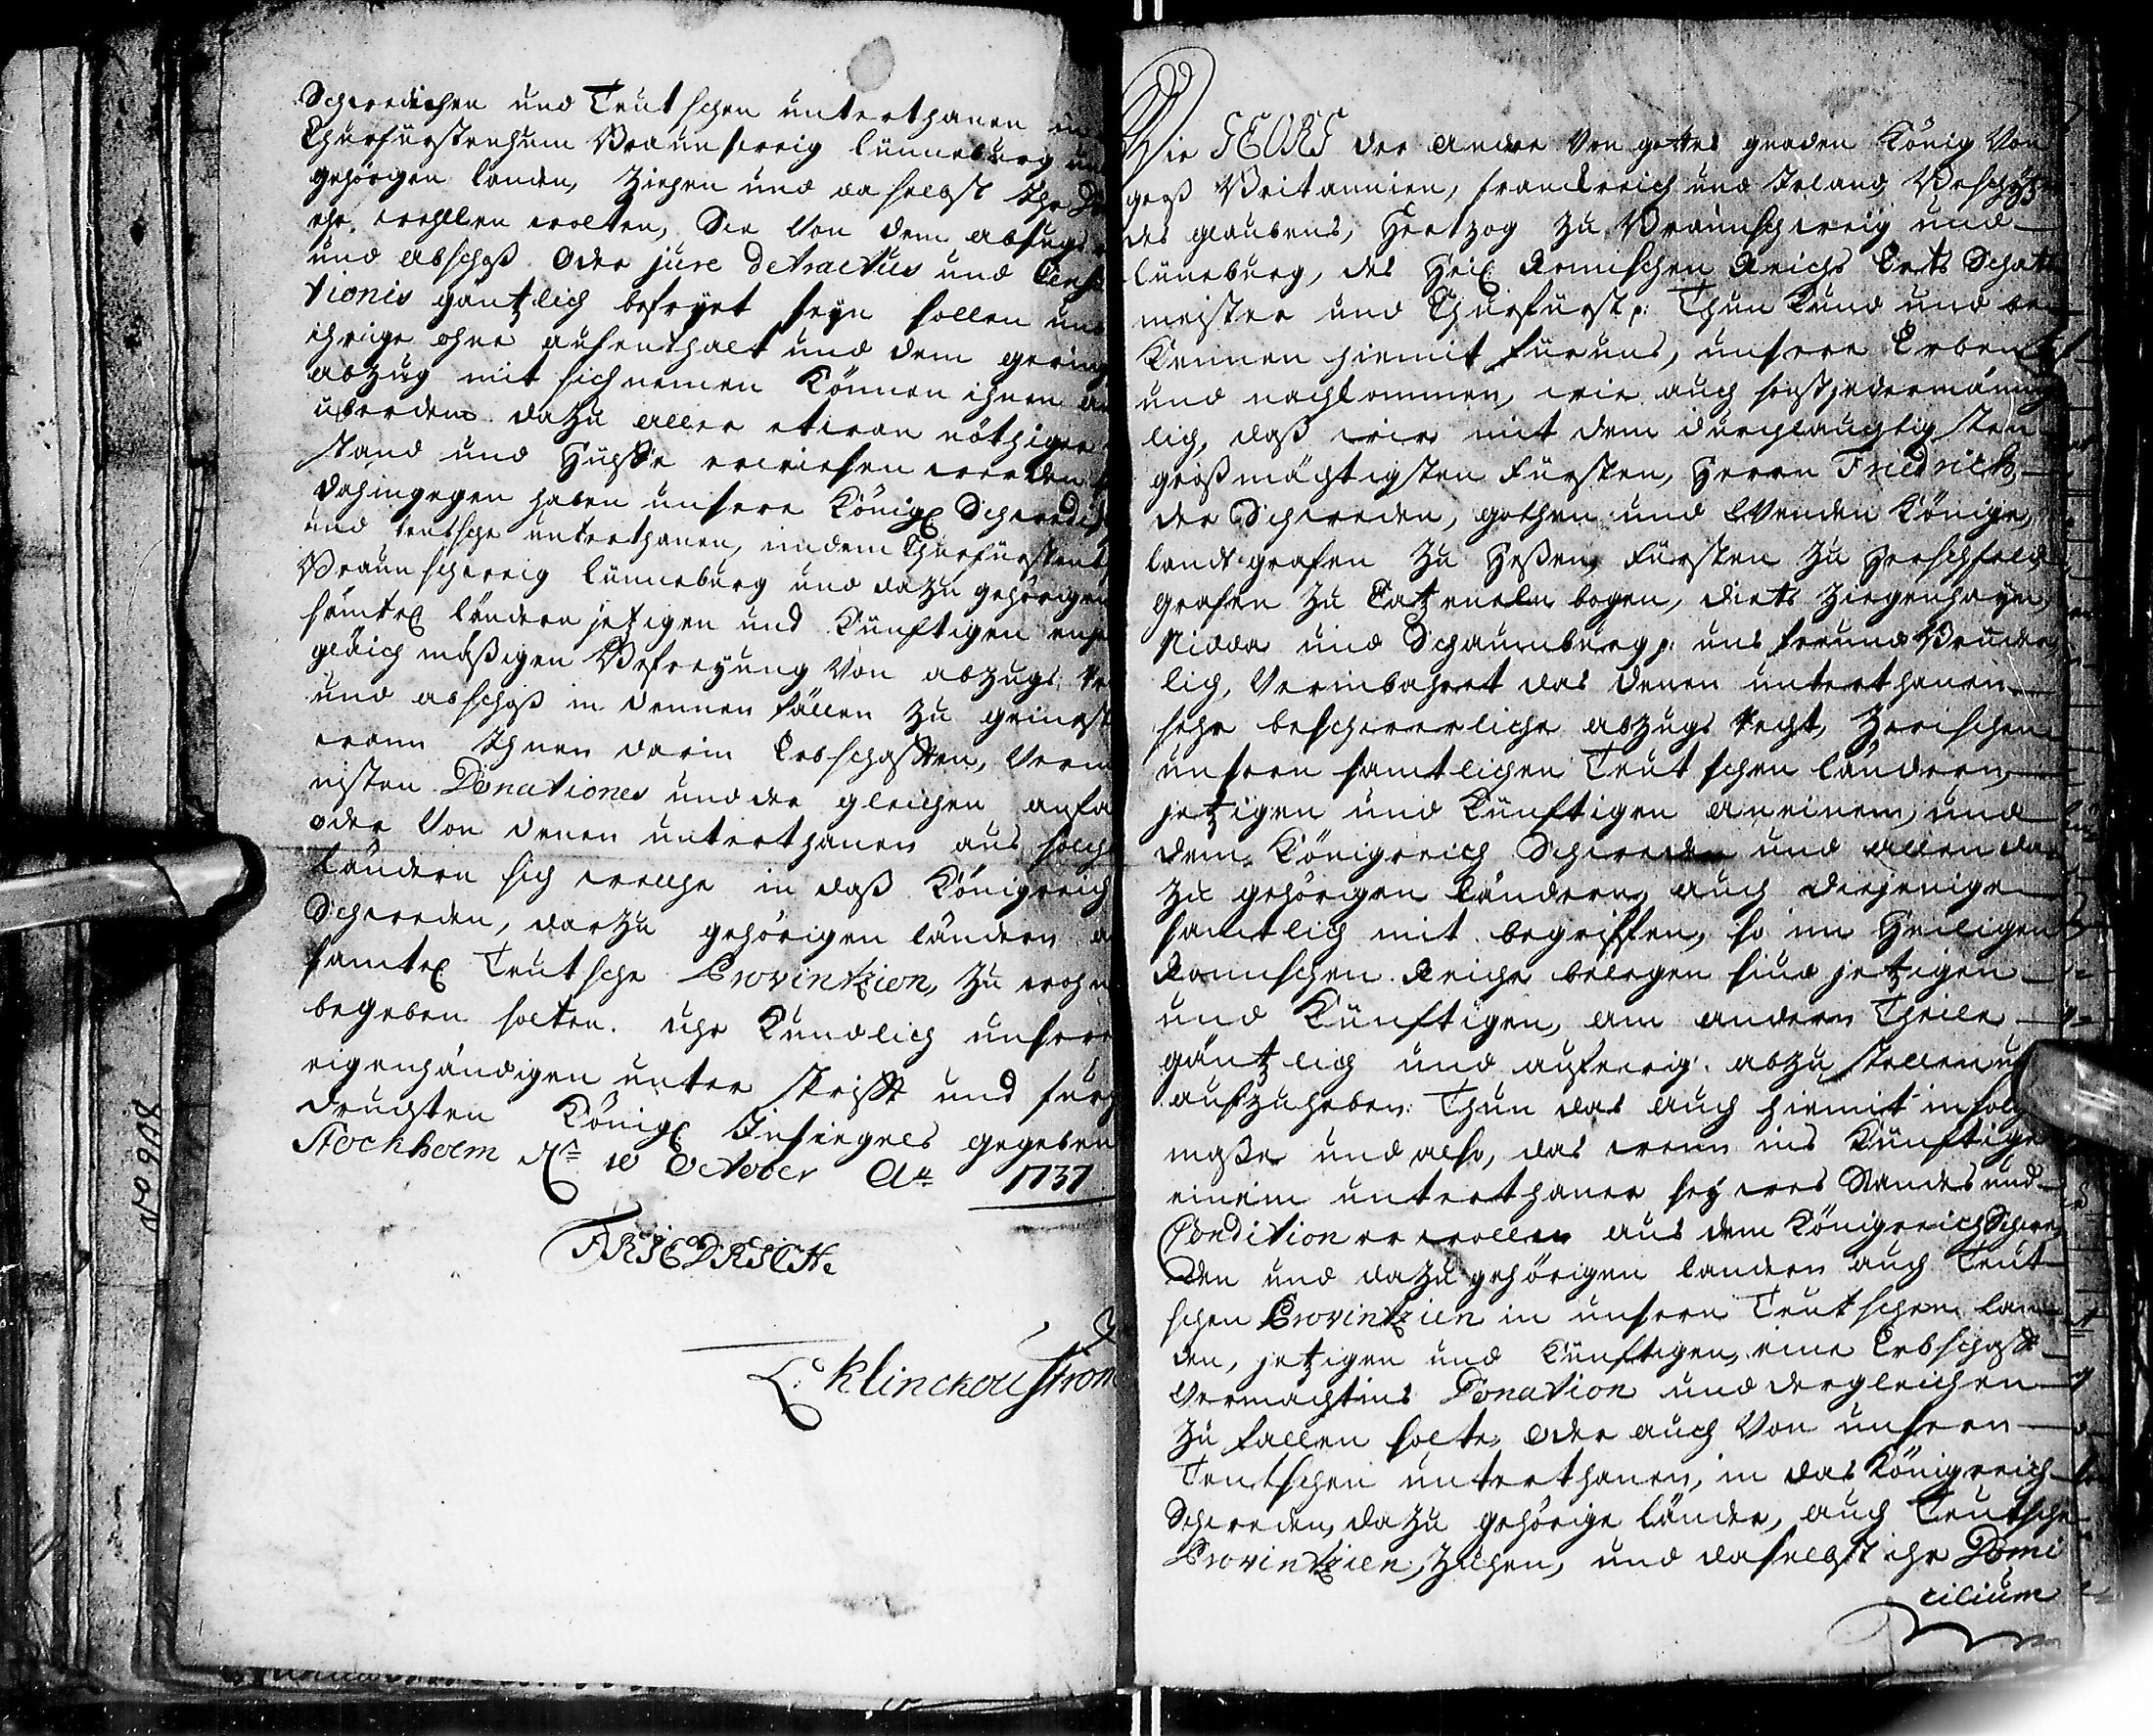 Schwedischen und Teutschen unterthanen in
Churfürstenhum Braunschweig lünneburg und
gehörigen landen, Ziehen und daselbst Ihr Do
ehr. wehllen wolten, Sie Von dem abzugs
und abschoß Oder jure detractus und Cens
tionis gäntzlich befryet seyn sollen und
ihrige ohne aufenthalt und dem gering
abzug mit sich nemen Können ihnen a
uberdem dazu aller etwan nöthiger
stand und Hülffe erwiesen werden
dahingegen haben unsere Königl Schwedis
und teutsche unterthanen, in dem Churfürstent
Braunschweig lünneburg und dazu gehörigen
sämtl ländern jetzigen und Künftigen
gleich mäßigen Befreyung Von abzugs
und abschoß in dennen fällen zu genies
wann Ihnen darin Erbschafften, Verm
nisten Donationes und der gleichen anfa
oder Von denen unterthanen aus solch
ländern sich welche in daß Königreich
Schweden, darzu gehörigen ländern a
samtl Teutsche Provintzien, zu wohn
begeben solten. Uhr Kundlich unser
eigenhändigen unter Schrifft und furg
druchten Königl. Insiegels gegeben
Stockholm d 10 October Ao 1737
FRIEDRICH.
E: Klinckowström
No 9AB
Wir GEORG der Ander Von gottes gnaden König Von
groß Britannien, franckreich und Irland, Beschütze
des glaubens, Hertzog zu Braunschweig und
lüneburg, des Heil Römischen Reichs Ertz Schatz
meister und Churfürst p: Thun Kund und be
Kennen hiemit für uns, unsere Erben
und nachkommen, wie auch sonst jedermännig
lich, daß wir mit dem durchlauchtigsten
großmächtigsten Fürsten, Herrn Friedrich
der Schweden, gothen und Wenden Könige,
landtgrafen zu Heßen, Fürsten zu Herschfeld
Grafen zu Catzenelnbogen, dietz Ziegenhayn,
Nidda und Schaumburg p: uns freund Brüder
lich, Vereinbahret das denen unterthanen
sehr beschwerliche abzugs recht, Zwischen
unsern samtlichen Teutschen ländern,
jetzigen und Künftigen an einem, und
dem Königreich Schweden und allen da
zu gehörigen ländern, auch diejenige
samtlich mit begriffen, so im Heiligen
Romischen Reiche belegen sind jetzigen
und Künftigen, am andern Theile
gäntzlich und auf ewig abzustellen un
aufzuheben: Thun das auch hiemit in solch
maße und also, das wenn ins Künftige
einem unterthaner sey wes Standes und
Condition er wolle aus dem Königreich Schwe
den und dazu gehörigen landen auch Teut
schen Provintzien in unsern Teutschen lan
den, jetzigen und Künftigen, eine Erbschafft
Vermachtnis Donation und dergleichen
zu fallen solte, Oder auch Von unsern
Teutschen unterthanen, in das Königreich
Schweden, dazu gehörige länder, auch Teutsche
Provintzien, Ziehen, und daselbst ihr Domi
cilium